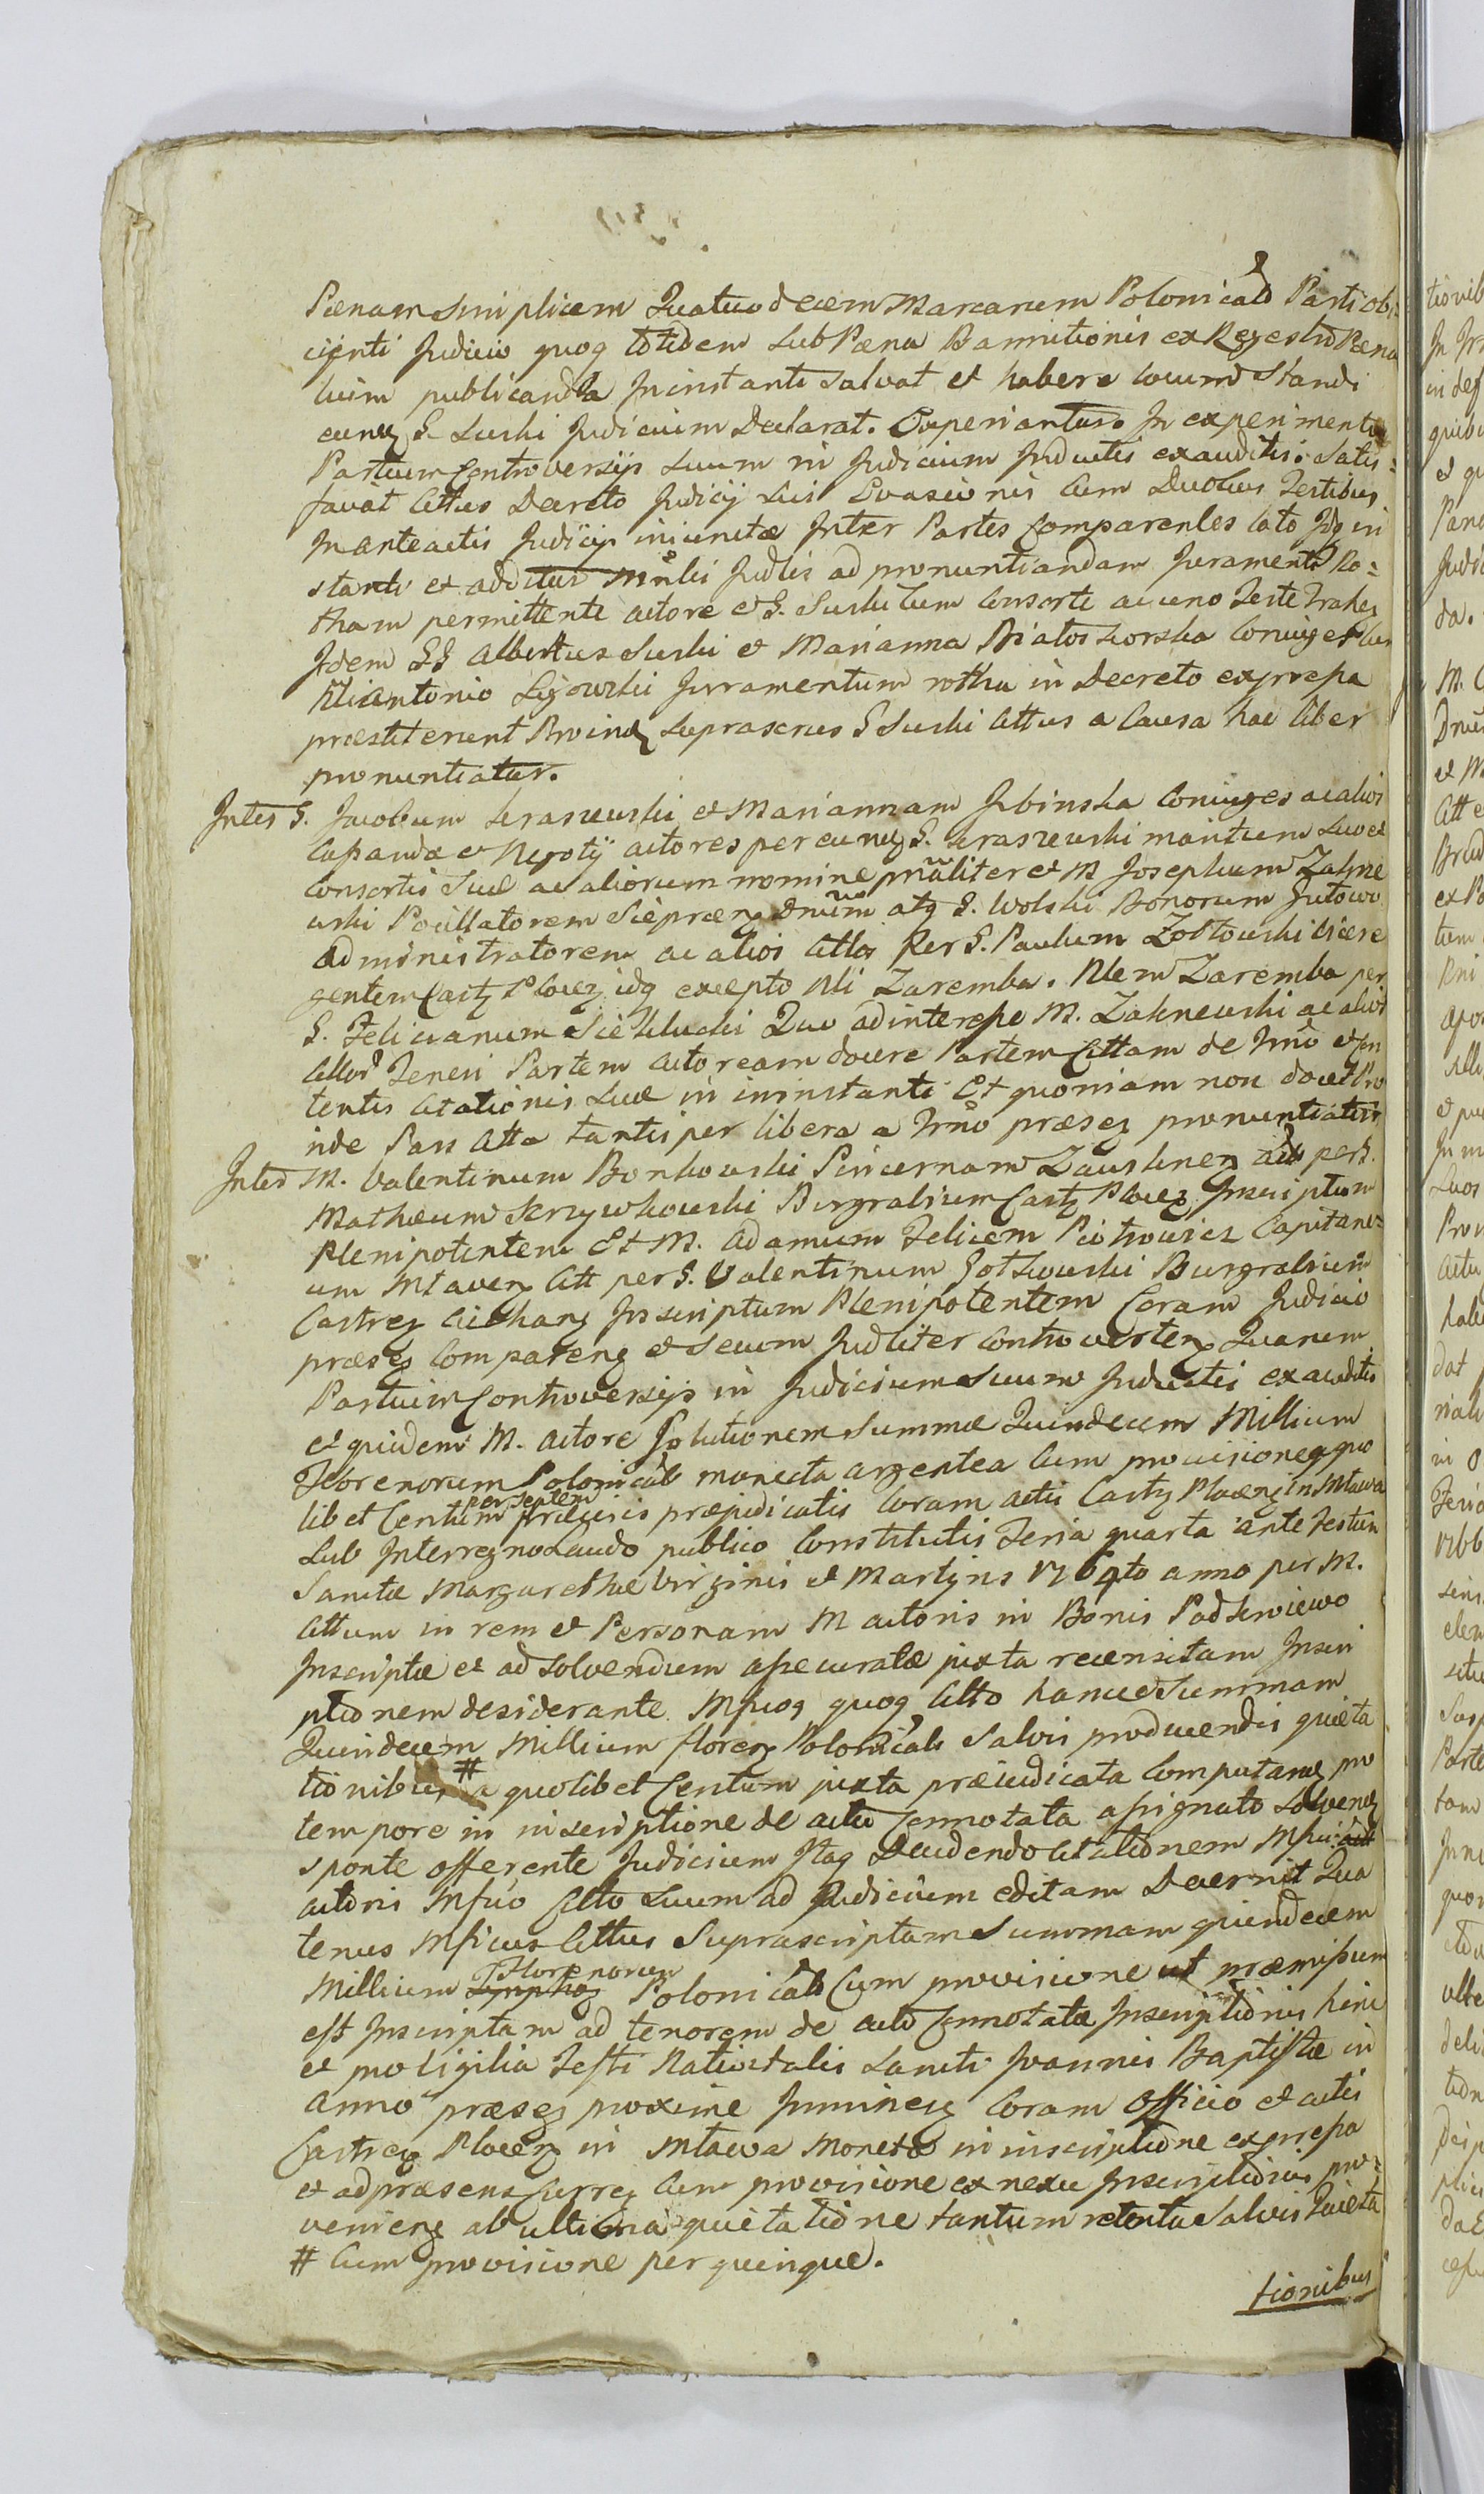 Pænam simplicem Quatuordecem Marcarum Polonicalo Parti obi-
cijenti Judicio quoq totidem sub Pæna Bannitionis ex Regestro Pæna
lium publicanda Ininstanti salvat et habere locum Standi
eunq G. Suski Judicium Declarat. Experiantur. In experimento
Partium Controversijs suum in Judicium Inductis exauditis. Satis-
faciat Cittus Decreto Judicij sui Evasionis cum Duobus Testibus
In anteactis Judicijs iniunctæ Inter Partes Comparentes lato Idq in
stanti et additur Judlis ad pronuntiandam Juramenti Ro=
tham permittente actore et G. Suski cum Consorte ac uno Teste
Idem GG Albertus Suski et Marianna Białoskorska Coniuges
Antonio Ligowski Jurramentum rotha in Decreto expressa
præstiterunt Proindq suprascrus G Suski Cittus a Causa hac liber
pronuntiatur.
Inter G. Jacobum Kraszewski et Mariannam Coniuges ac alios
Causandæ et Negotij actores per eunq G. Kraszewski maritum suo et
Consortis suæ ac aliorum nomine prnāliter et M Josephum Zakrze
wski Pocillatorem Sierpcen Dnum atq G. Wolski Bonorum Gutowo
administratorem ac alios Cittos Per G. Paulum Żółtowski
gentem Castr Plocen idq excepto Nli Zaremba. Nlem Zaremba per
G. Felicianum Siekluchi Quo ad interesse M. Zakrzewski ac alios
Cittos Teneri Partem actoream docere Partem Cittam de Trno et Con
tentis Citationis suæ in ininstanti Et quoniam non docet Pro
inde Pars Citta tantisper libera a Trno præsez pronuntiatur
Inter M. Valentinum Bonkowski Pincernam Zawskrzen per G.
Mathæum Krzywkowski Burgrabium Castr Plocen Inscriptum
Plenipotentem Et M. Adamum Felicem Piotrowicz Capitane=
um Mlaven Citt per G. Valentinum Gotkowski Burgrabium
Castren Ciechanq Inscriptum Plenipotentem Coram Judicio
præsq Comparenq et secum Judliter Controverten Quarum
Partium Controversijs in Judicium suum Inductis exauditis
et quidem M. actore Solutionem Summæ Quindecem Millium
Florenorum Polonicalo moneta argentea Cum provisione a quo
libet Centum per septem præcisis præjudicatis Coram actis Castr Plocen in Mława
Sub Interregno Laudo publico Constitutis Feria quarta ante Festum
Sanctæ Margarethæ Virginis et Martyris 1764to anno per M.
Cittum in rem et Personam M actoris in Bonis Padkrwiewo
Inscriptæ et ad solvendum assecuratæ juxta recensitam Inscri
ptionem desiderante. Msuoq quoq Citto hancce Summam
Quindecem Millium floren Polonicalo Salvis producendis quieta
tionibus # a quolibet Centum juxta præiudicata Computanq pro
tempore in inscriptione de actu Connotata assignato solvenq
sponte offerente Judicium Itaq Decidendo Citationem Msici
actoris Msuo Citto suum ad Judicium editam Decernit Qua
tenus Msicus Cittus Suprascriptam Summam quindecem
Millium Florenorum Polonicalo Cum provisione ut præmissum
est Inscriptam ad tenorem de actu Connotatæ Inscriptionis hinc
et pro Vigilia Festi Nativitatis Sancti Joannis Baptistæ in
anno præseq proxime Iminenq Coram Officio et actis
Castren Plocen in Mława Moneta in inscriptione expressa
et ad præsens Curren Cum provisione ex nexu Inscriptionis pro=
venienq ab ultima quietatione tantum retenta Salvis Quieta
# Cum provisione per quinque.
tionibus